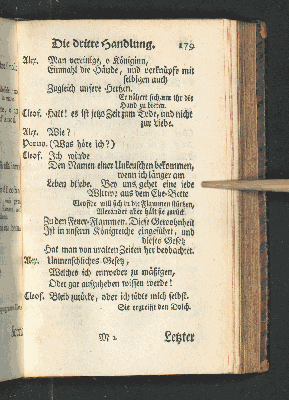 Die dritte Handlung. 179
Alex. Man vereinige, o Königinn,
Einmahl die Hände, und verknüpfe mit
selbigen auch
Zugleich unsere Hertzen.
Er nähert sich, um ihr die
Hand zu bieten.
Cleof. Halt! es ist jetzo Zeit zum Tode, und nicht
zur Liebe.
Alex. Wie?
Poro. (Was höre ich?)
Cleof. Ich würde
Den Namen einer Unkeuschen bekommen,
wenn ich länger am
Leben bliebe. Bey uns gehet eine jede
Wittwe aus dem Ehe-Bette
Cleofice will sich in die Flammen stürtzen,
Alexander aber hält sie zurück.
Zu den Feuer-Flammen. Diese Gewohnheit
Ist in unserm Königreiche eingeführt, und
dieses Gesetz
Hat man von uralten Zeiten her beobachtet.
Alex. Unmenschliches Gesetz,
Welches ich entweder zu mäßigen,
Oder gar aufzuheben wissen werde!
Cleof. Bleib zurücke, oder ich tödte mich selbst.
Sie ergreifft den Dolch.
M 2 Letzter